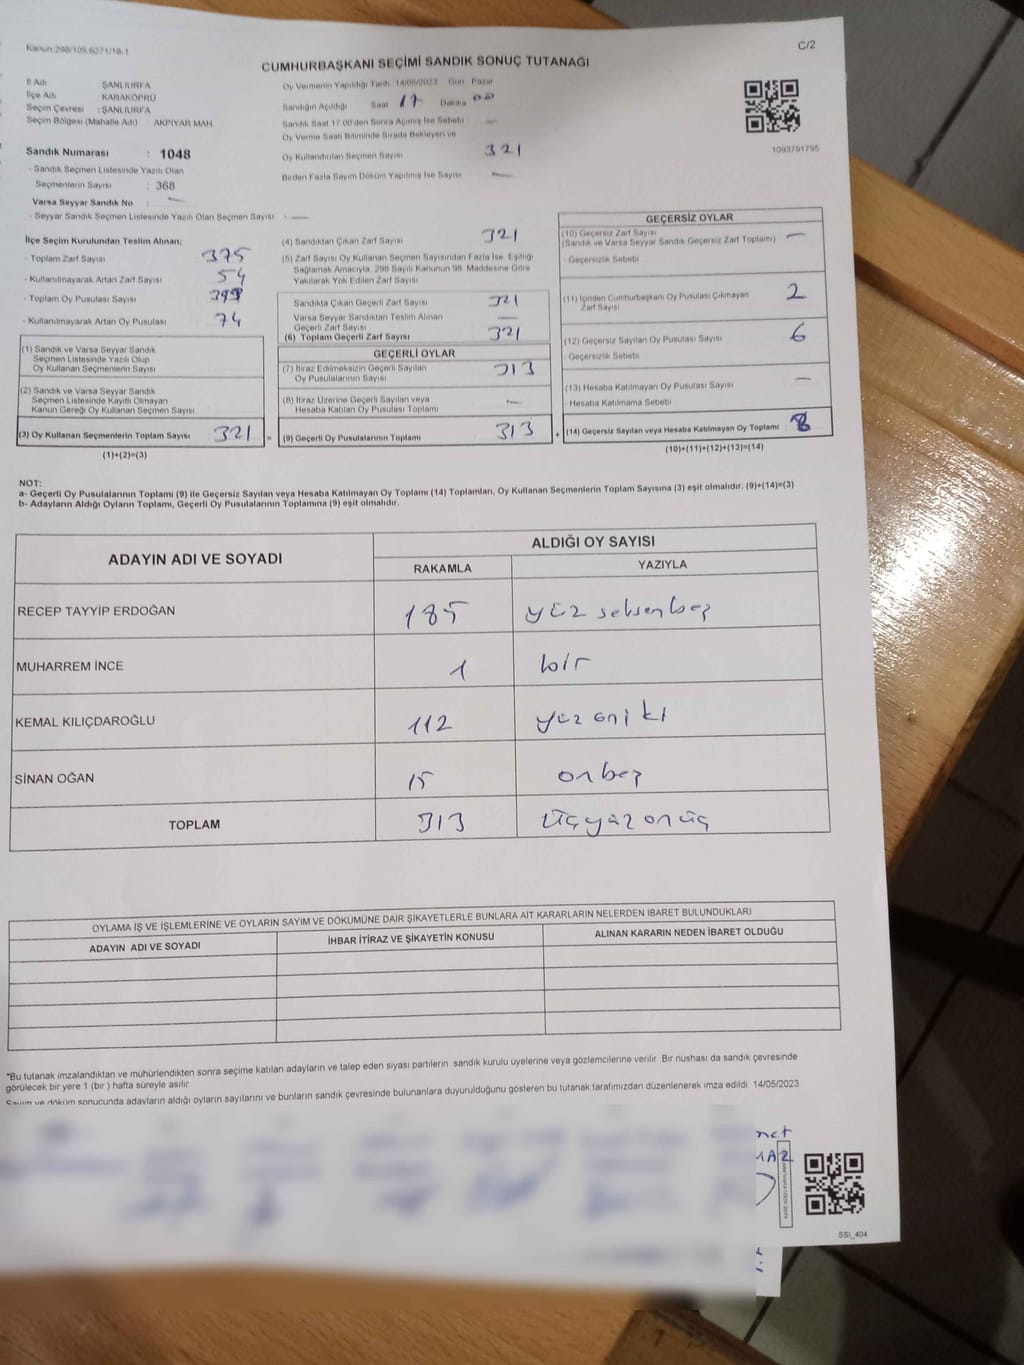 Kanun:298/105,6271/18-1
C/2
CUMHURBAŞKANI SEÇİMİ SANDIK SONUÇ TUTANAĞI
İl Adı : ŞANLIURFA
İlçe Adı : KARAKÖPRÜ
Seçim Çevresi : ŞANLIURFA
Seçim Bölgesi (Mahalle Adı) : AKPIYAR MAH.
Oy Vermenin Yapıldığı Tarih 14/05/2023 Gün Pazar
Sandığın Açıldığı Saat 17 Dakika 00
Sandık Saat 17.00'den Sonra Açılmış İse Sebebi —
Oy Verme Saati Bitiminde Sırada Bekleyen ve
Oy Kullandırılan Seçmen Sayısı 321
Birden Fazla Sayım Döküm Yapılmış İse Sayısı —
1093791795
Sandık Numarası : 1048
- Sandık Seçmen Listesinde Yazılı Olan
Seçmenlerin Sayısı : 368
Varsa Seyyar Sandık No : —
- Seyyar Sandık Seçmen Listesinde Yazılı Olan Seçmen Sayısı : —
İlçe Seçim Kurulundan Teslim Alınan;
- Toplam Zarf Sayısı 375
- Kullanılmayarak Artan Zarf Sayısı 54
- Toplam Oy Pusulası Sayısı
- Kullanılmayarak Artan Oy Pusulası 74
(1) Sandık ve Varsa Seyyar Sandık
Seçmen Listesinde Yazılı Olup
Oy Kullanan Seçmenlerin Sayısı
(2) Sandık ve Varsa Seyyar Sandık
Seçmen Listesinde Kayıtlı Olmayan
Kanun Gereği Oy Kullanan Seçmen Sayısı
(3) Oy Kullanan Seçmenlerin Toplam Sayısı 321 =
(1)+(2)=(3)
(4) Sandıktan Çıkan Zarf Sayısı 321
(5) Zarf Sayısı Oy Kullanan Seçmen Sayısından Fazla İse, Eşitliği
Sağlamak Amacıyla, 298 Sayılı Kanunun 98. Maddesine Göre
Yakılarak Yok Edilen Zarf Sayısı
Sandıkta Çıkan Geçerli Zarf Sayısı 321
Varsa Seyyar Sandıktan Teslim Alınan
Geçerli Zarf Sayısı —
(6) Toplam Geçerli Zarf Sayısı 321
GEÇERLİ OYLAR
(7) İtiraz Edilmeksizin Geçerli Sayılan
Oy Pusulalarının Sayısı 313
(8) İtiraz Üzerine Geçerli Sayılan veya
Hesaba Katılan Oy Pusulası Toplamı —
(9) Geçerli Oy Pusulalarının Toplamı 313 +
GEÇERSİZ OYLAR
(10) Geçersiz Zarf Sayısı —
(Sandık ve Varsa Seyyar Sandık Geçersiz Zarf Toplamı)
- Geçersizlik Sebebi
(11) İçinden Cumhurbaşkanı Oy Pusulası Çıkmayan
Zarf Sayısı 2
(12) Geçersiz Sayılan Oy Pusulası Sayısı 6
- Geçersizlik Sebebi
(13) Hesaba Katılmayan Oy Pusulası Sayısı —
- Hesaba Katılmama Sebebi
(14) Geçersiz Sayılan veya Hesaba Katılmayan Oy Toplamı 8
(10)+(11)+(12)+(13)=(14)
NOT:
a- Geçerli Oy Pusulalarının Toplamı (9) ile Geçersiz Sayılan veya Hesaba Katılmayan Oy Toplamı (14) Toplamları, Oy Kullanan Seçmenlerin Toplam Sayısına (3) eşit olmalıdır. (9)+(14)=(3)
b- Adayların Aldığı Oyların Toplamı, Geçerli Oy Pusulalarının Toplamına (9) eşit olmalıdır.
ADAYIN ADI VE SOYADI
ALDIĞI OY SAYISI
RAKAMLA YAZIYLA
RECEP TAYYİP ERDOĞAN 185 yüz seksenbeş
MUHARREM İNCE 1 bir
KEMAL KILIÇDAROĞLU 112 yüz oniki
SİNAN OĞAN 15 onbeş
TOPLAM 313 üçyüz onüç
OYLAMA İŞ VE İŞLEMLERİNE VE OYLARIN SAYIM VE DÖKÜMÜNE DAİR ŞİKAYETLERLE BUNLARA AİT KARARLARIN NELERDEN İBARET BULUNDUKLARI
ADAYIN ADI VE SOYADI İHBAR İTİRAZ VE ŞİKAYETİN KONUSU ALINAN KARARIN NEDEN İBARET OLDUĞU
*Bu tutanak imzalandıktan ve mühürlendikten sonra seçime katılan adayların ve talep eden siyasi partilerin sandık kurulu üyelerine veya gözlemcilerine verilir. Bir nüshası da sandık çevresinde
görülecek bir yere 1 (bir ) hafta süreyle asılır.
Sayım ve döküm sonucunda adayların aldığı oyların sayılarını ve bunların sandık çevresinde bulunanlara duyurulduğunu gösteren bu tutanak tarafımızdan düzenlenerek imza edildi. 14/05/2023
SSI_404